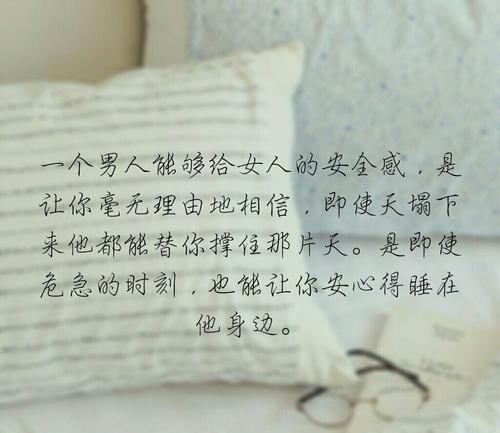 一个男人能够给女人的安全感，是
让你毫无理由地相信，即使天塌下
来他都能替你撑住那片天。是即使
危急的时刻，也能让你安心得睡在
他身边。